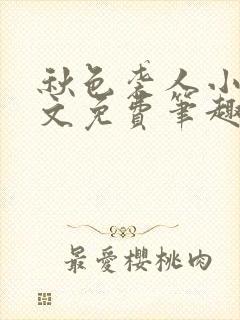 秋色袭人小
文免费笔趣
最愛櫻桃肉